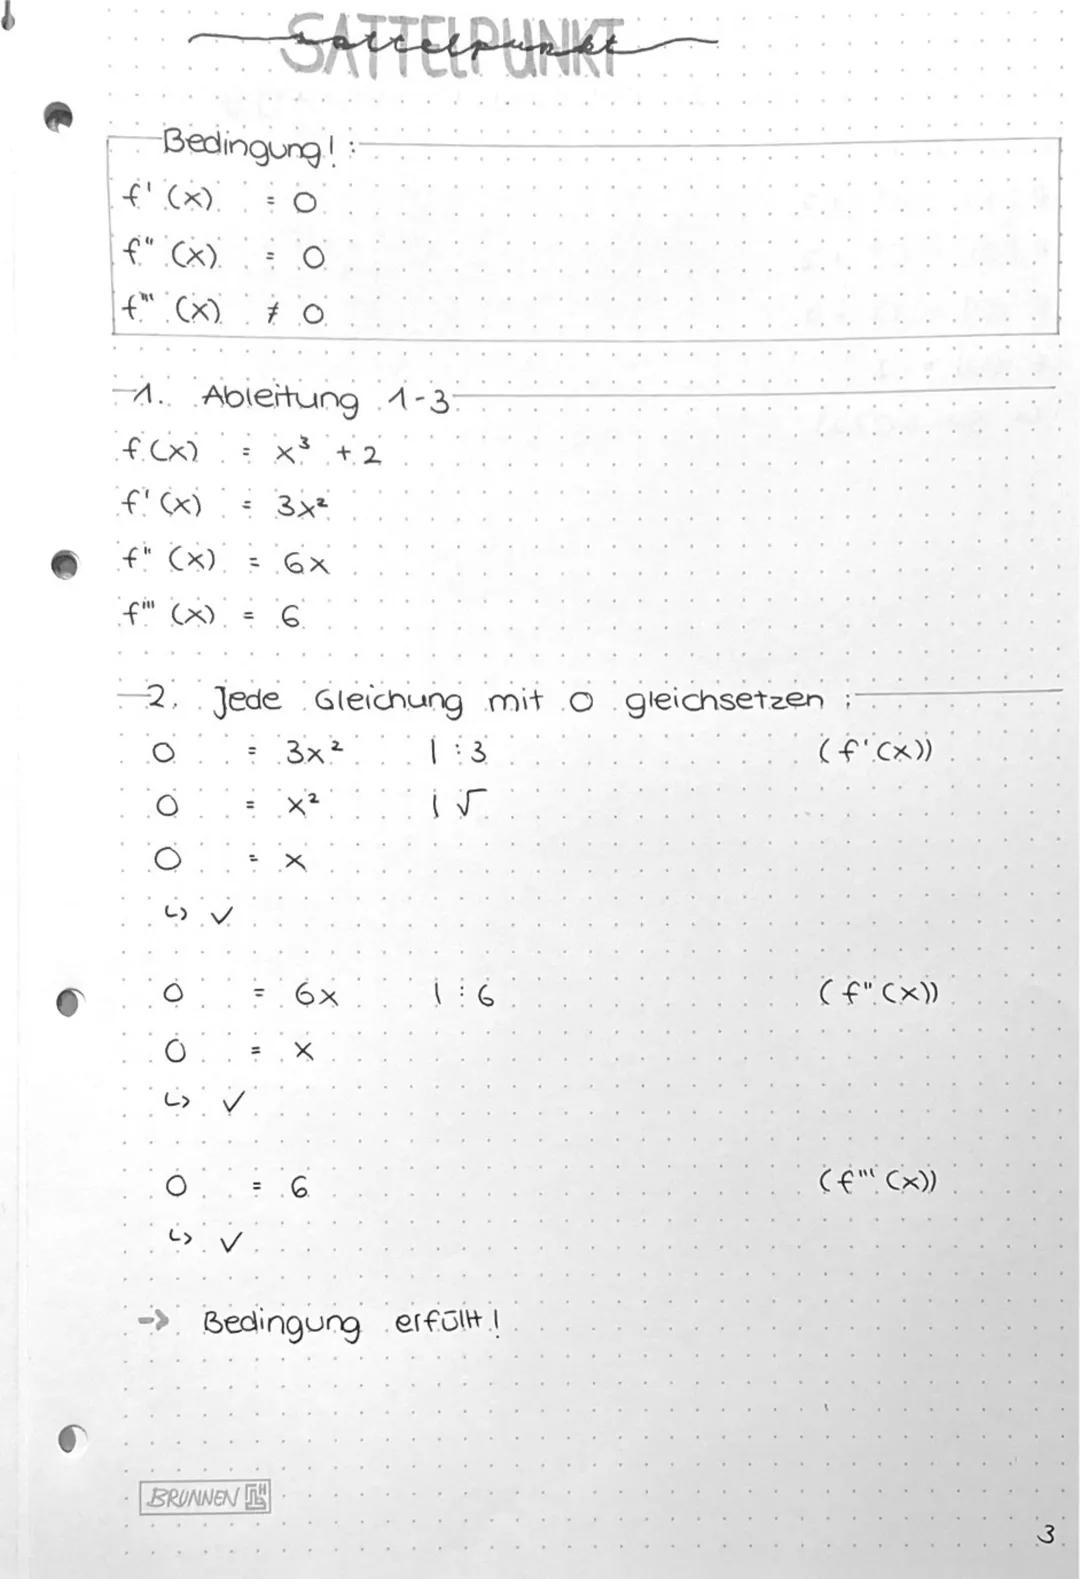 SATTELPUNKT
sattelpunkt
Bedingung! :
f' (x) = 0
f'' (x) = 0
f''' (x) ≠ 0
1. Ableitung 1-3
f (x) = x³ + 2
f' (x) = 3x²
f'' (x) = 6x
f''' (x) = 6
2. Jede Gleichung mit 0 gleichsetzen :
0 = 3x² | : 3 (f'(x))
0 = x² | √
0 = x
↳ ✓
0 = 6x | : 6 (f''(x))
0 = x
↳ ✓
0 = 6 (f'''(x))
↳ ✓
→ Bedingung erfüllt!
BRUNNEN
3